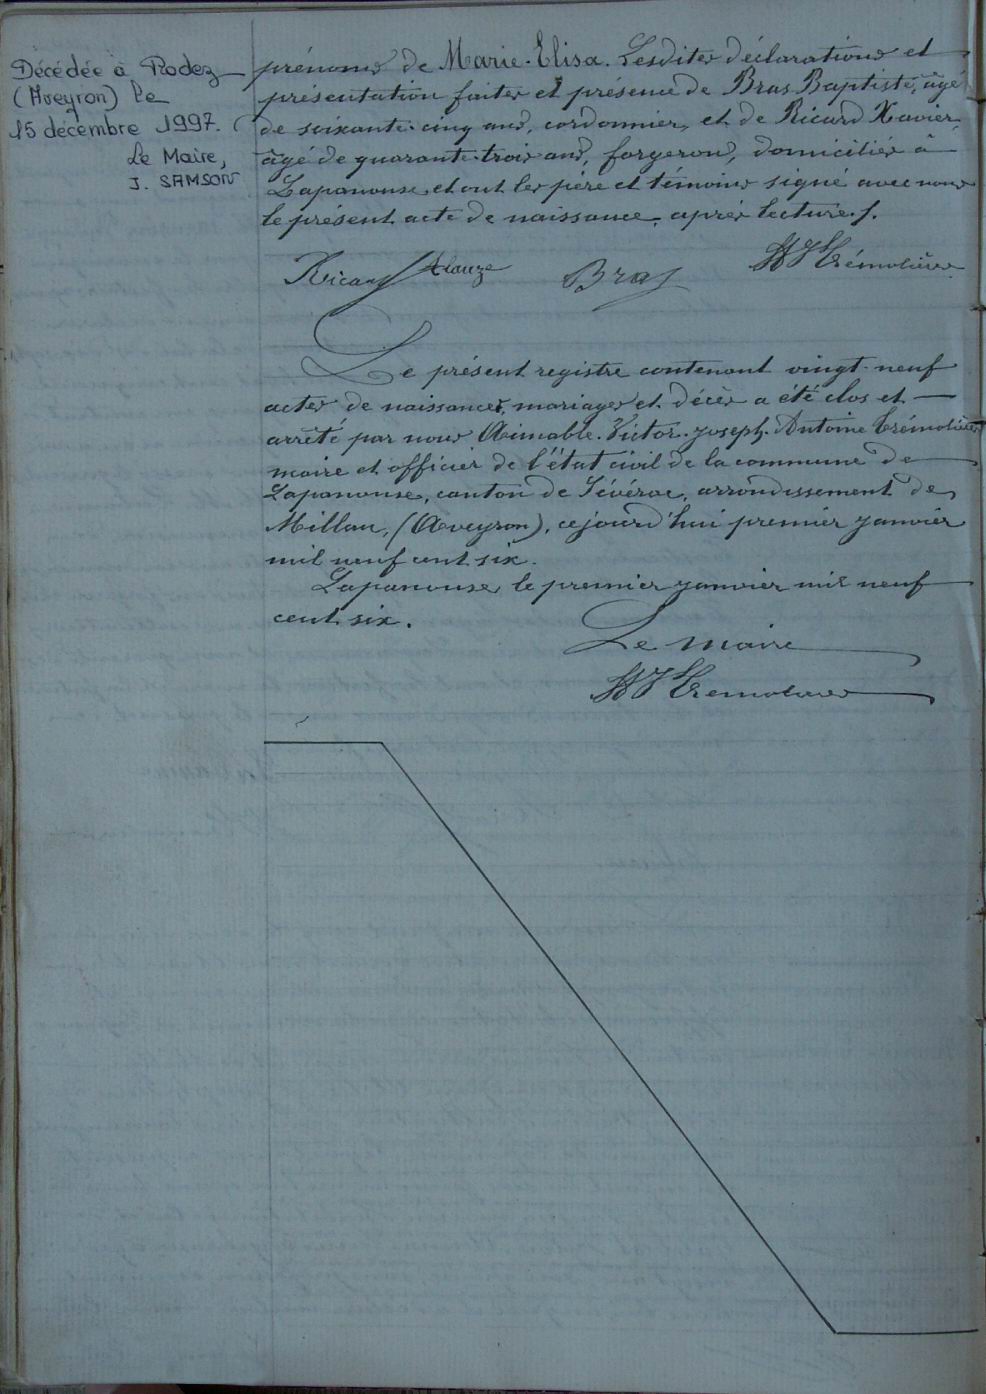 Décédée à Rodez
(Aveyron) le
15 décembre 1997.
Le Maire,
J. SAMSON
prénoms de Marie-Elisa. Lesdites déclarations et
présentation faites et présence de Bras Baptiste, âgé
de soixante-cinq ans, cordonnier, et de Ricard Xavier,
âgé de quarante-trois ans, forgeron, domiciliés à
Lapanouse, et ont les père et témoins signé avec nous
le présent acte de naissance, après lecture./.
Ricard Alauze Bras AVJ Trémolières
Le présent registre contenant vingt-neuf
actes de naissances, mariages et décès a été clos et
arrêté par nous Aimable-Victor-Joseph-Antoine Trémolières
maire et officier de l'état civil de la commune de
Lapanouse, canton de Sévérac, arrondissement de
Millau, (Aveyron), cejourd'hui premier janvier
mil neuf cent six.
Lapanouse, le premier janvier mil neuf
cent six.
Le Maire
AVJ Trémolières